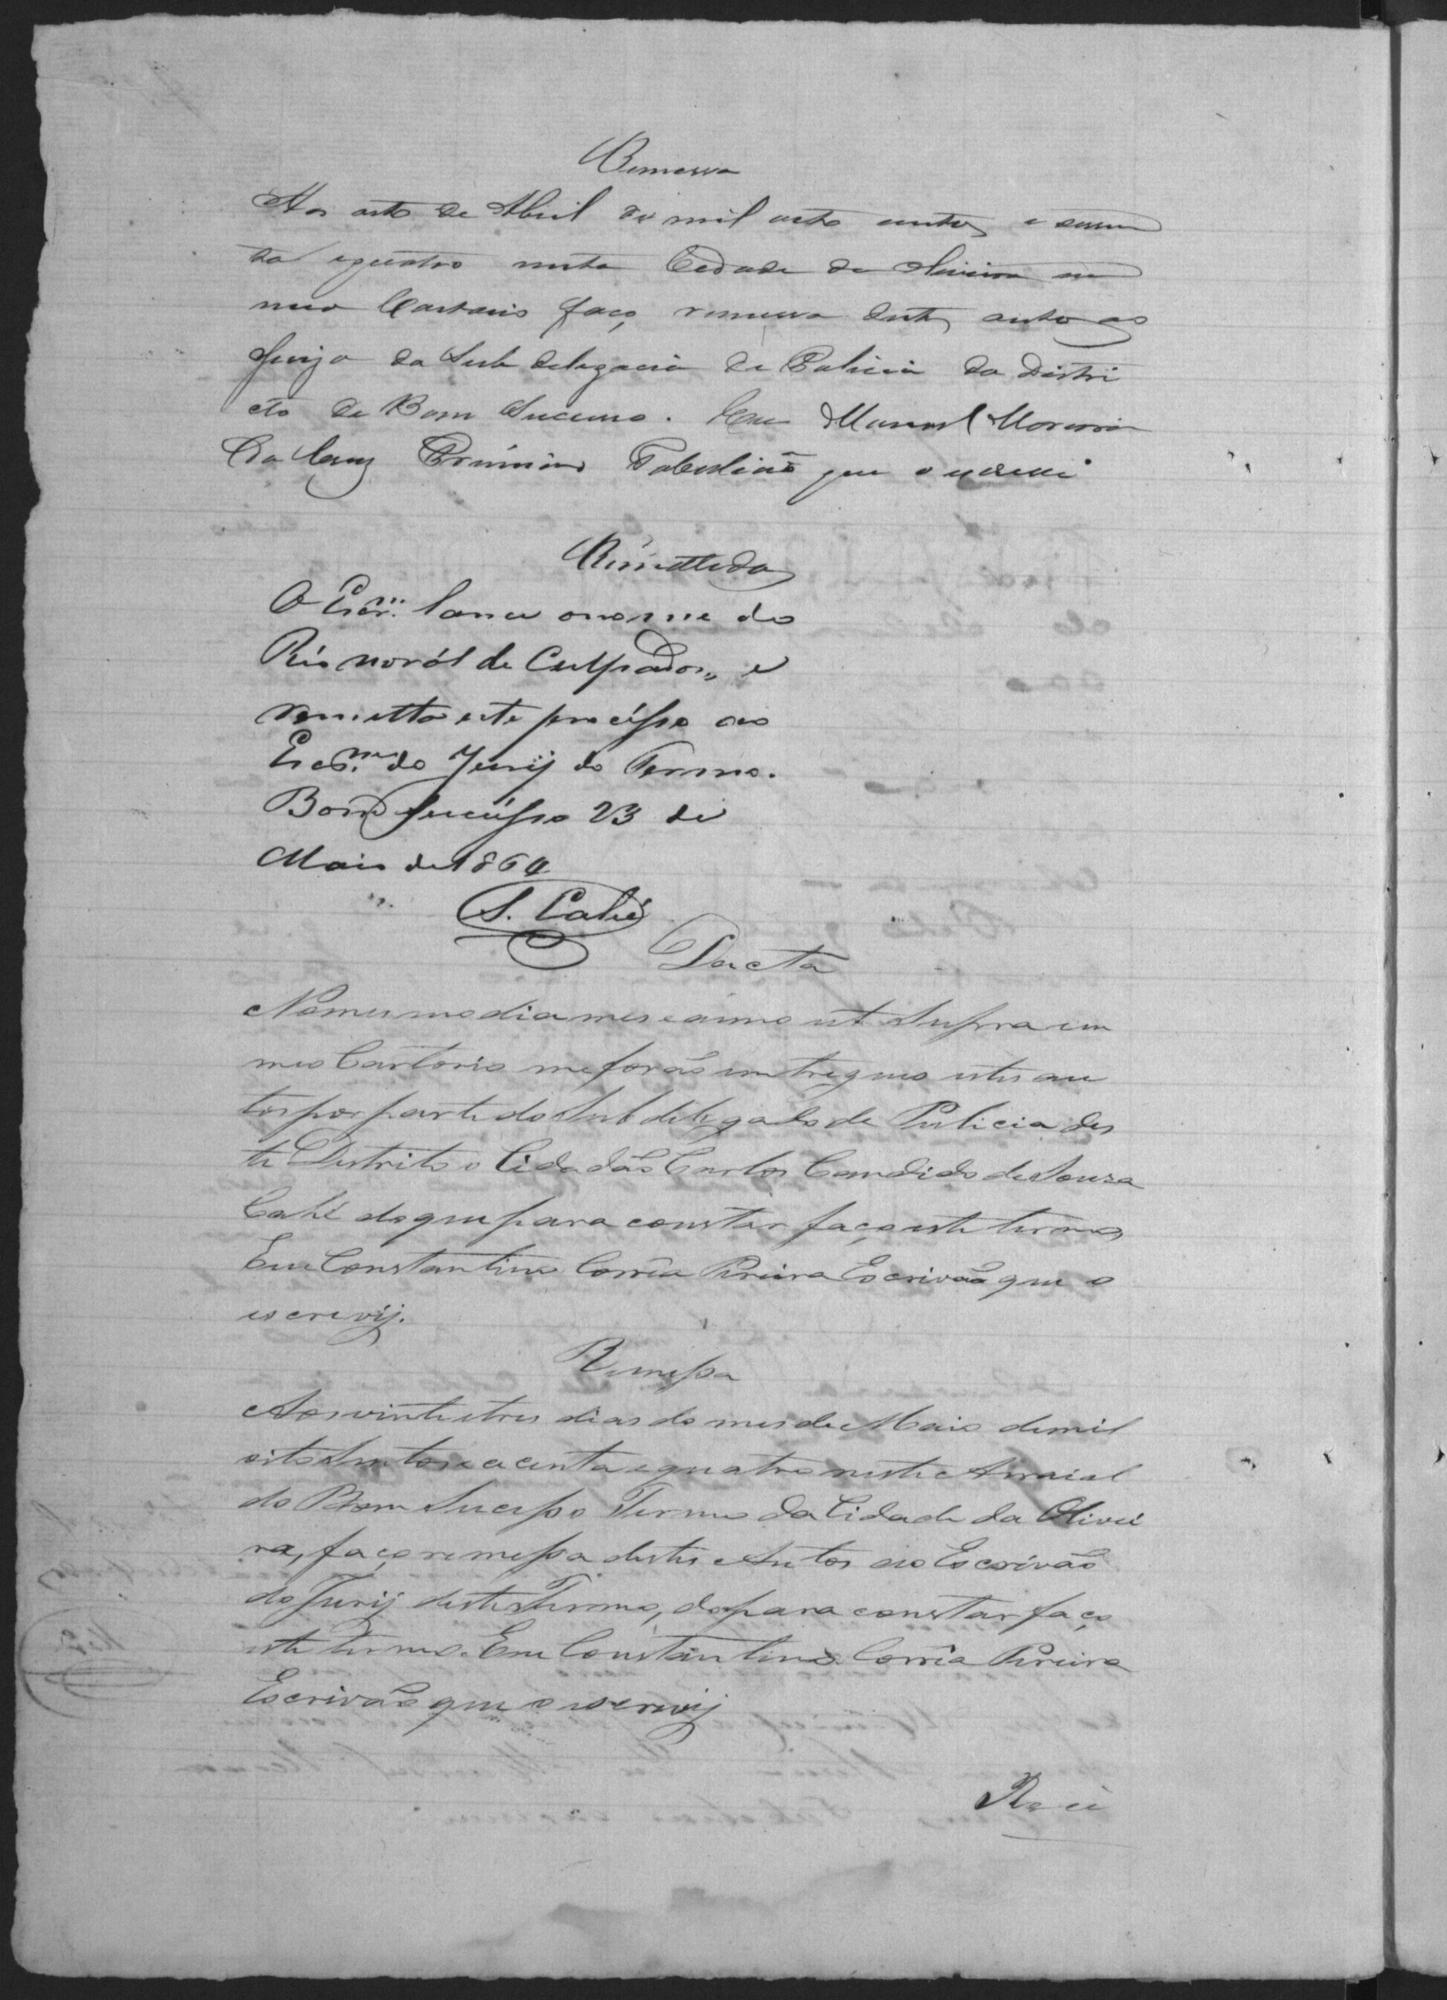 Remessa
Aos oito de Abril de mil oito centos e sessen
ta equatro nesta Cidade da Oliveira em
meo Cartorio faço remessa destes autos ao
Juizo da Sub delegacia de Policia do Distri
cto de Bom Successo. Eu Manoel Moreira
da Cruz Tabelião que o escrevi
Remettida
O Escr.m lance o nome do
Réo no ról de Culpados, e
remetta este procésso ao
Escr.m do Jurij do Termo.
Bom Sucésso 23 de
Maio de 1864
S. Cahé
Dacta
No mesmo dia mes e anno ut Supra em
meo Cartorio me forão entregues estes au
tos por parte do Sub delegado de Policia des
te Distrito o Cidadão Carlos Candido de Souza
Cahé do que para constar faço este termo
Eu Constantino Corrêa Pereira Escrivão que o
escrevij.
Remessa
Aos vinte e tres dias do mes de Maio de mil
oito sentos e cecenta e quatro neste Arraial
do Bom Sucesso Termo da Cidade da Olivei
ra, faço remessa destes Autos ao Escrivão
do Jurij deste Termo, do para constar faço
este termo. Eu Constantino Corrêa Pereira
Escrivão que o escrevij